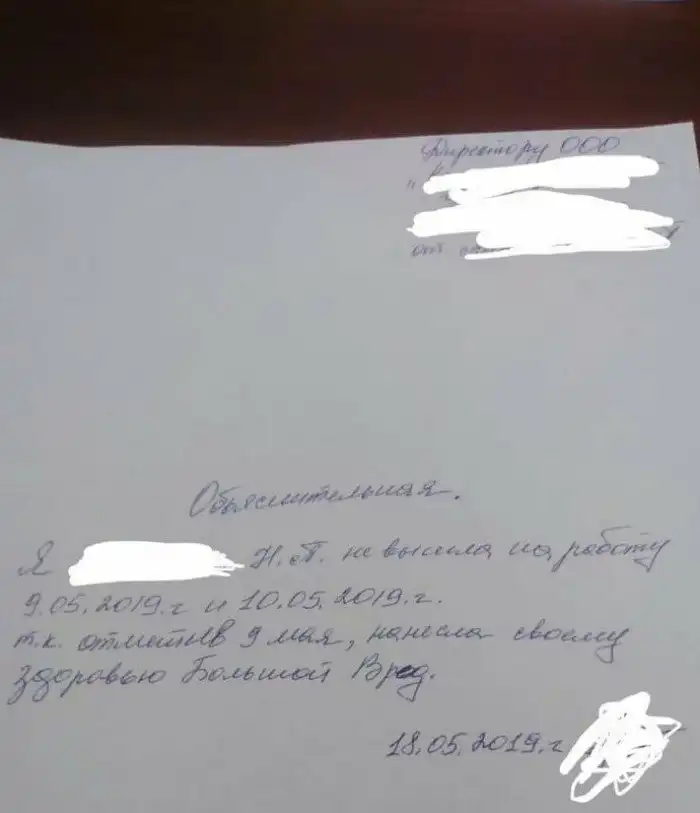 Директору ООО
"
от
Объяснительная.
Я Н.П. не вышла на работу
9.05.2019.г и 10.05.2019.г.
т.к. отметив 9 мая, нанесла своему
здоровью Большой Вред.
18.05.2019.г